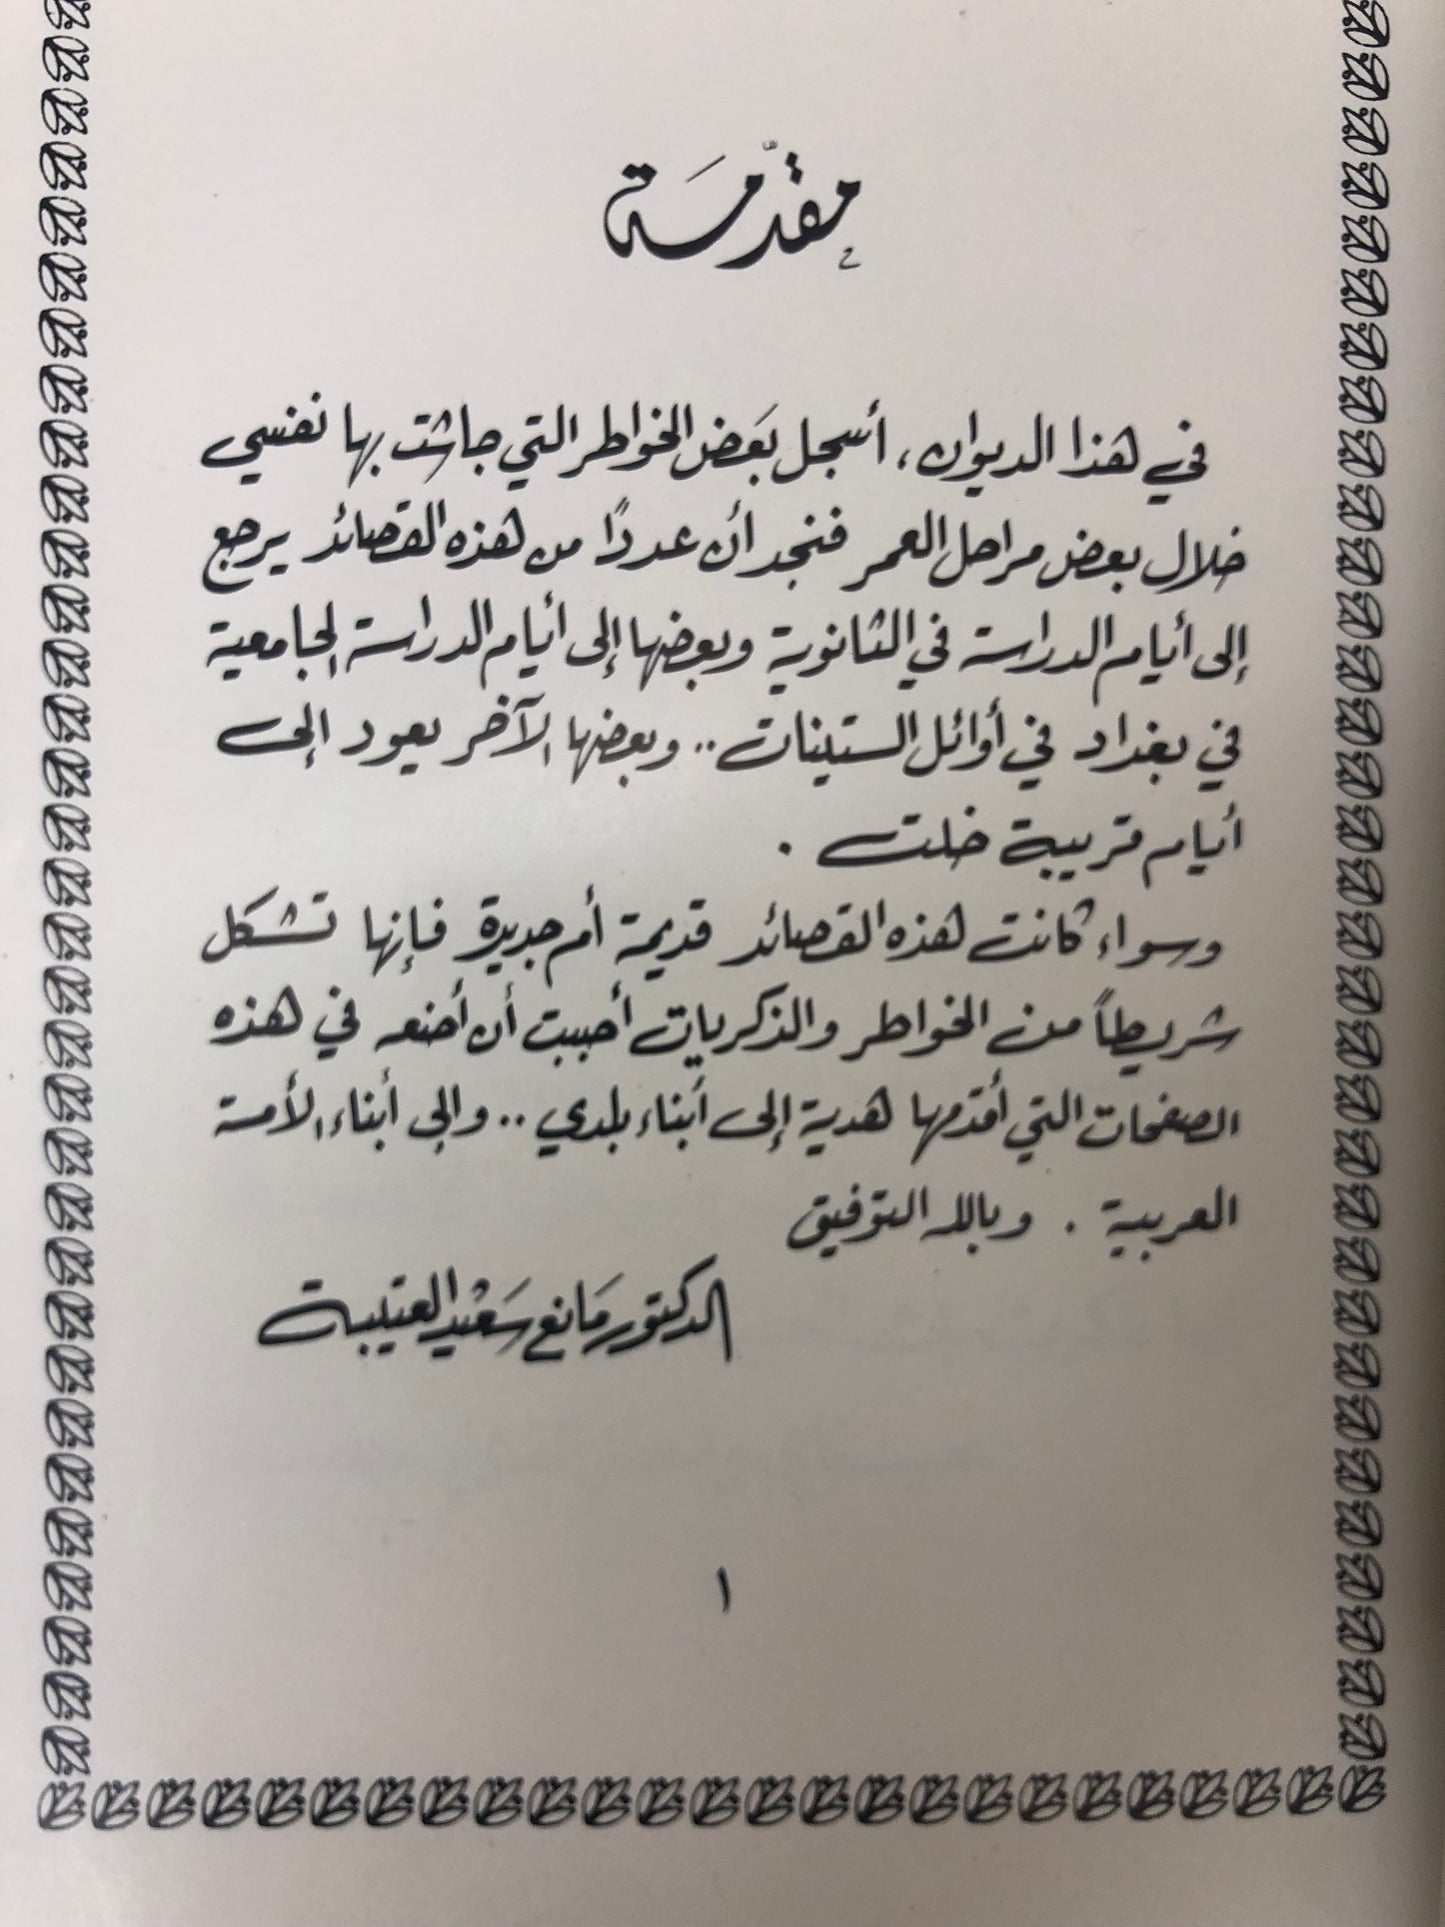 مقدّمَة
في هذا الديوان، أسجل بَعض الخواطر التي جاشت بها نفسي
خلال بعض مراحل العمر فنجد أن عددًا من هذه القصائد يرجع
إلى أيام الدراسة في الثانوية وبعضها إلى أيام الدراسة الجامعية
في بغداد في أوائل الستينات .. وبعضها الآخر يعود إلى
أيام قريبة خلت .
وسواء كانت هذه القصائد قديمة أم جديدة فإنها تشكل
شريطاً من الخواطر والذكريات أحببت أن أضعه في هذه
الصفحات التي أقدمها هدية إلى أبناء بلدي .. والى أبناء الأمة
العربية . وبالله التوفيق
الدكتور مَانع سَعيد العتيبة
١